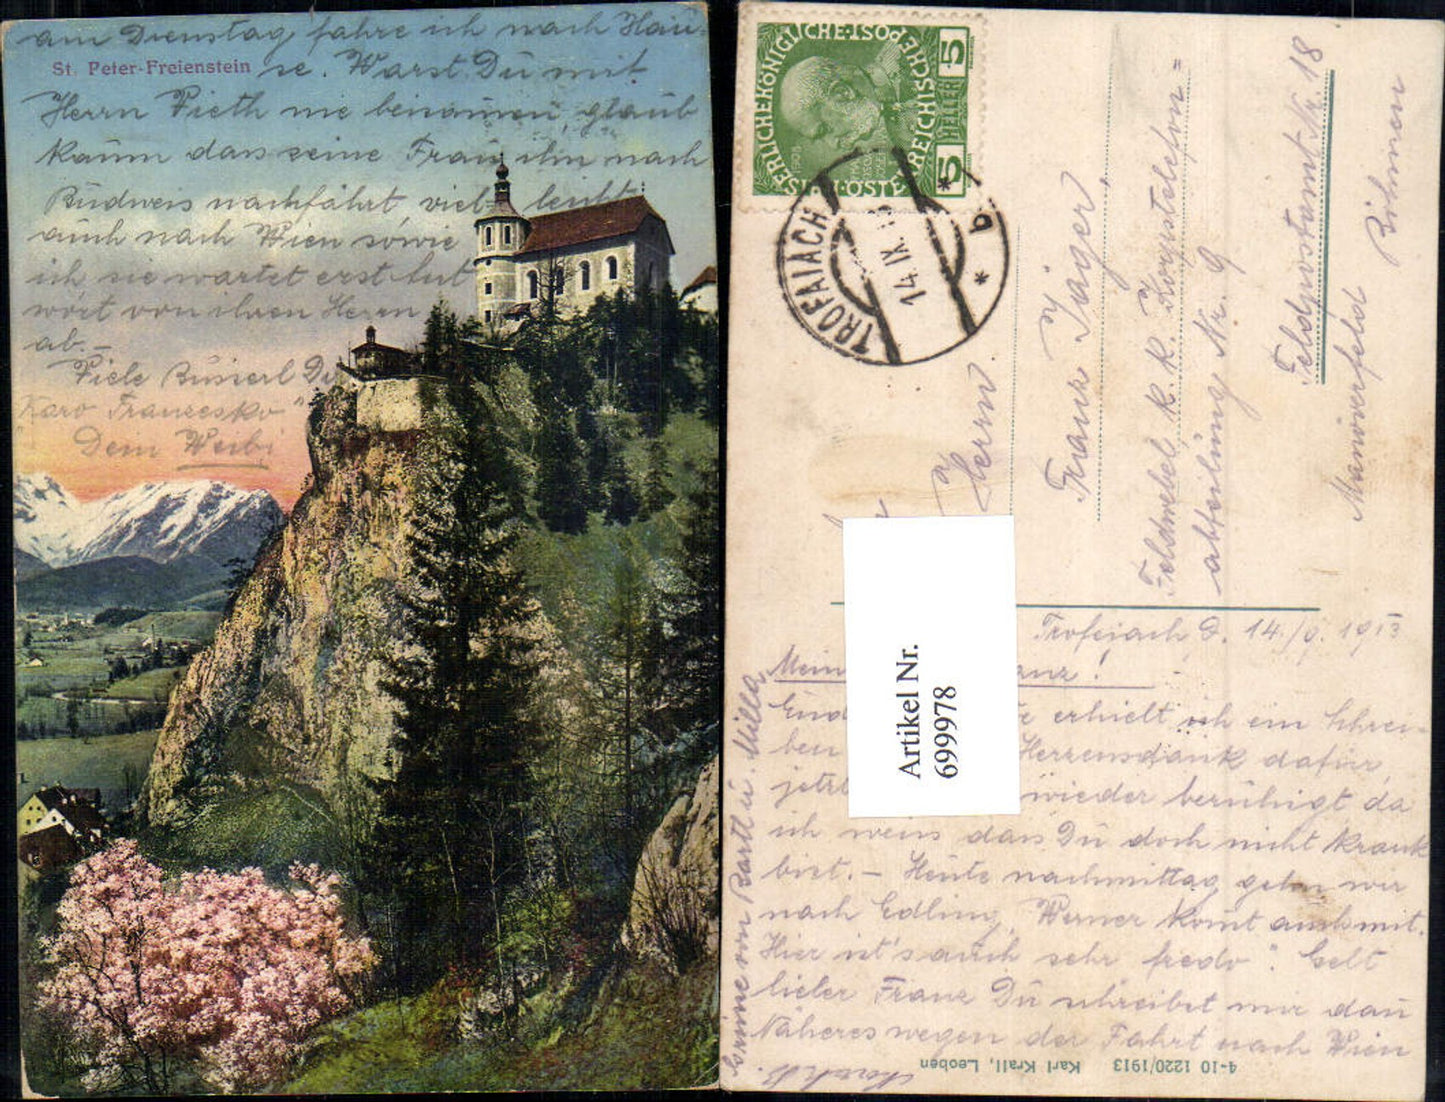 am Dienstag fahre ich nach Hau-
St. Peter-Freienstein
se. Warst Du mit
Herrn Pieth nie benamen, glaub
kaum dass seine Frau ihm nach
Budweis nachfährt, viel leicht
auch nach Wien sowie
ich sie wartet erst
wort von ihren Herrn
ab.-
Viele Busserl Du
"Karo Franzesko"
Dein Weibi
KAISERLICHE KÖNIGLICHE ÖSTERREICHISCHE POST
5 HELLER 5
TROFAIACH
14.IX.13
* b *
Herrn
Franz Jäger,
Feldwebel k. k. Korpstelefon=
abteilung Nr. 9
Feldpostamt Nr. 18
Manöverfeld Böhmen
Artikel Nr.
699978
Trofeiach d. 14./9. 1913
Mein Franz!
erhielt ich ein Schrei-
ben Herzensdank dafür,
jetzt wieder beruhigt da
ich weis dass Du doch nicht krank
bist. – Heute nachmittag gehn wir
nach Edling, Werner komt auch mit.
Hier ist's auch sehr "fredo". Gelt
lieber Franz Du schreibst mir dan
Näheres wegen der Fahrt nach Wien
Grüsse von Bartl u. Milla
4-10 1220/1913 Karl Krall, Leoben